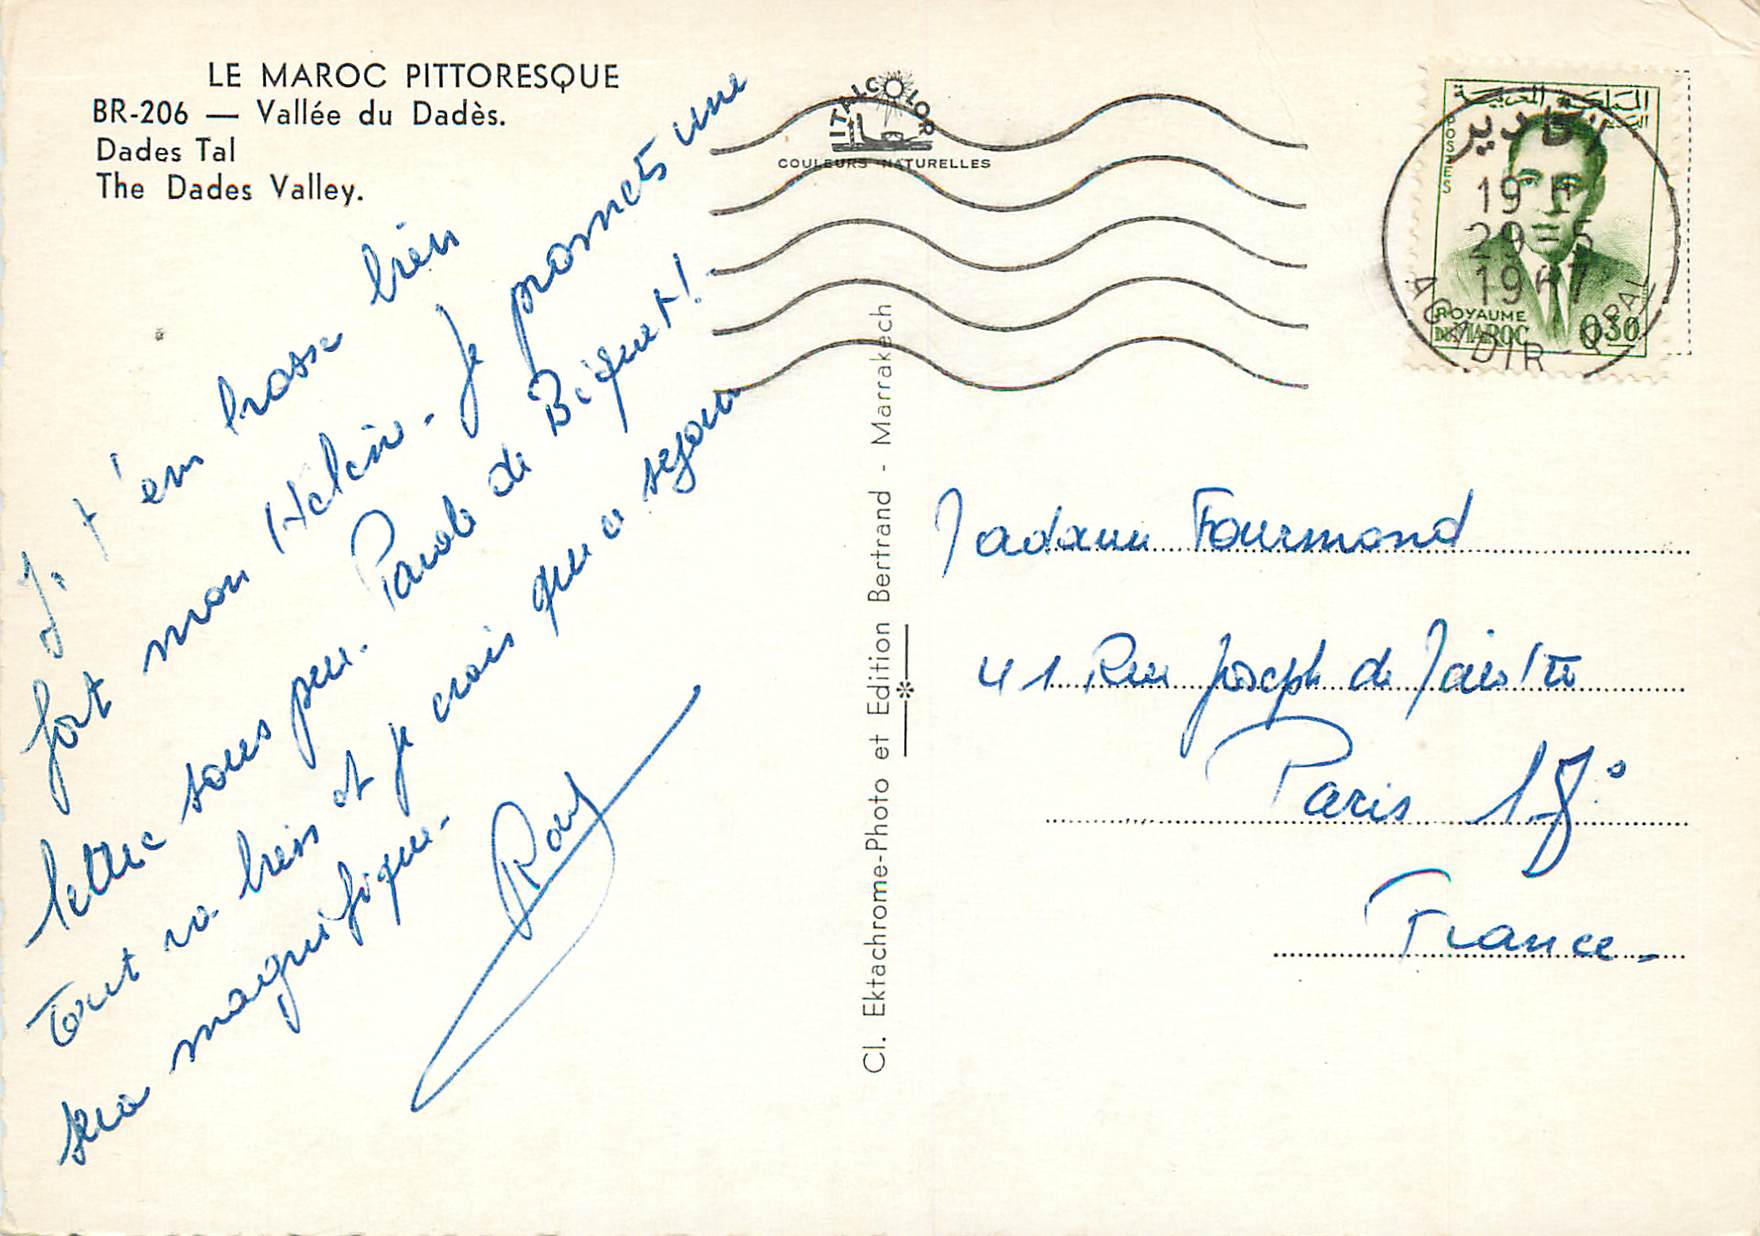 LE MAROC PITTORESQUE
BR-206 — Vallée du Dadès.
Dades Tal
The Dades Valley.
Je t'em brasse bien
fort mon Hélène - Je promets une
lettre sous peu. Parole de Biquet!
Tout va bien et je crois que ce séjour
sera magnifique.
ITALCOLOR
COULEURS NATURELLES
Cl. Ektachrome-Photo et Edition Bertrand - Marrakech
المملكة المغربية
البريد
POSTES
ROYAUME
DU MAROC
0.30
اكادير
19 H
29-5
1967
AGADIR-PPAL
Madame Fourmond
41 Rue Joseph de Maistre
Paris 18°
France.